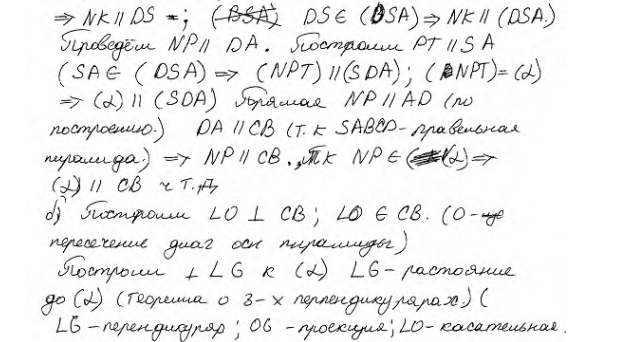 ⇒ NK ∥ DS ; (BSA) DS ∈ (DSA) ⇒ NK ∥ (DSA.)
Проведём NP ∥ DA. Построим PT ∥ SA
(SA ∈ (DSA) ⇒ (NPT) ∥ (SDA) ; (NPT) = (α)
⇒ (α) ∥ (SDA) Прямая NP ∥ AD (по
построению.) DA ∥ CB (т.к SABCD - правельная
пирамида.) ⇒ NP ∥ CB. , тк NP ∈ (α) ⇒
(α) ∥ CB ч т.д
б) Построим LO ⊥ CB ; LO ∈ CB. (O -
пересечение диаг осн пирамиды)
Построим ⊥ LG к (α) LG - растояние
до (α) (теорема о 3-х перпендикулярах.) (
LG - перендикуляр ; OG - проекция ; LO - касательная.